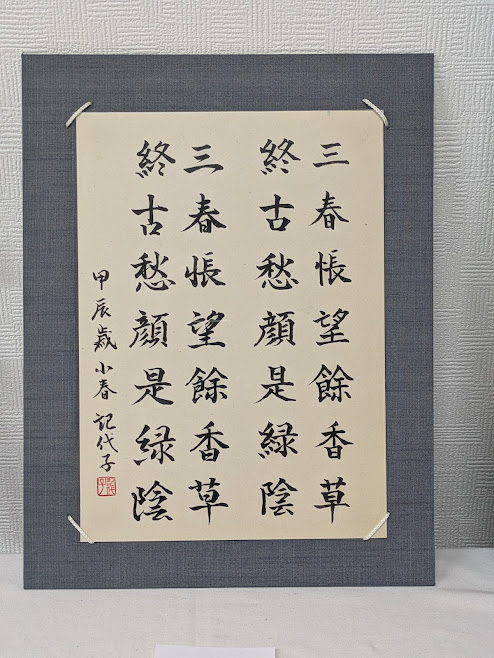 三春悵望餘香草
終古愁顔是緑陰
三春悵望餘香草
終古愁顔是緑陰
甲辰歳小春 記代子